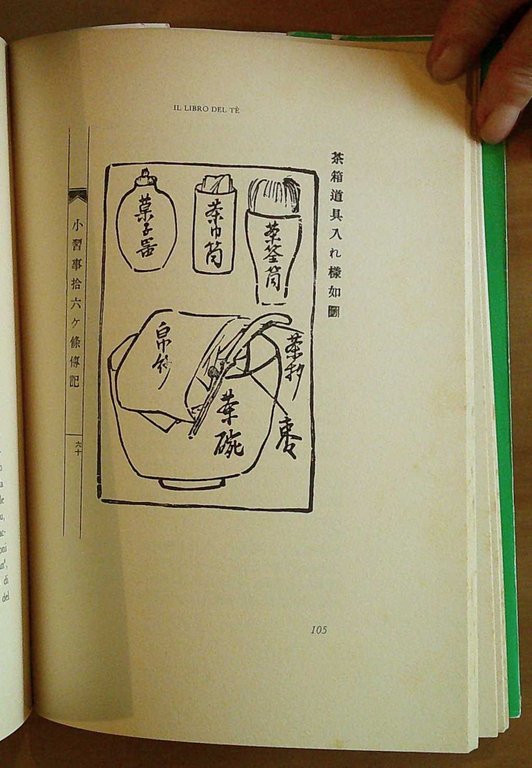 IL LIBRO DEL TÈ
茶箱道具入れ様如圖
茶筌筒
茶巾筒
菓子器
茶杓
棗
帛紗
茶碗
小習事拾六ケ條傳記
六十
105
di
del